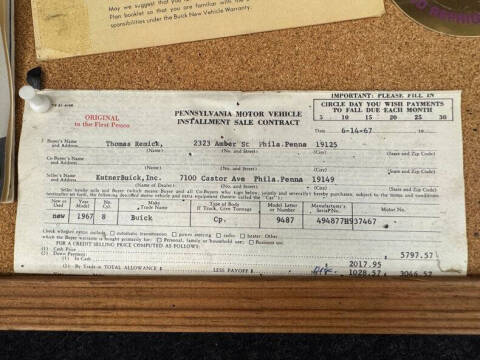 May we suggest that you
Plan booklet so that you are familiar with the
sponsibilities under the Buick New Vehicle Warranty.
ORIGINAL
to the First Pennco
PENNSYLVANIA MOTOR VEHICLE
INSTALLMENT SALE CONTRACT
IMPORTANT: PLEASE FILL IN
CIRCLE DAY YOU WISH PAYMENTS
TO FALL DUE EACH MONTH
5 10 15 20 25 30
Date 6-14-67
Buyer's Name and Address Thomas Remick, 2323 Amber St Phila.Penna 19125
(Name) (No. and Street) (City) (State and Zip Code)
Co-Buyer's Name and Address
(Name) (No. and Street) (City) (State and Zip Code)
Seller's Name and Address KutnerBuick,Inc. 7100 Castor Ave Phila.Penna 19149
(Name of Dealer) (No. and Street) (City) (State and Zip Code)
New or Used Year Model No. Cyl. Make If Truck, Give Tonnage Type of Body Model Letter or Number Manufacturer's Serial No. Motor No.
new 1967 8 Buick Cp. 9487 494877H937467
Check whether option include: automatic transmission: power steering radio: heater: Other:
which the Buyer warrants is bought primarily for: Personal, family or household use: Business use.
FOR A CREDIT SELLING PRICE COMPUTED AS FOLLOWS:
(1) Cash Price $ 5797.57
(2) Down Payment
(1) In Cash $ 2017.95
(2) By Trade in TOTAL ALLOWANCE $ LESS PAYOFF $ 1028.57 3046.52